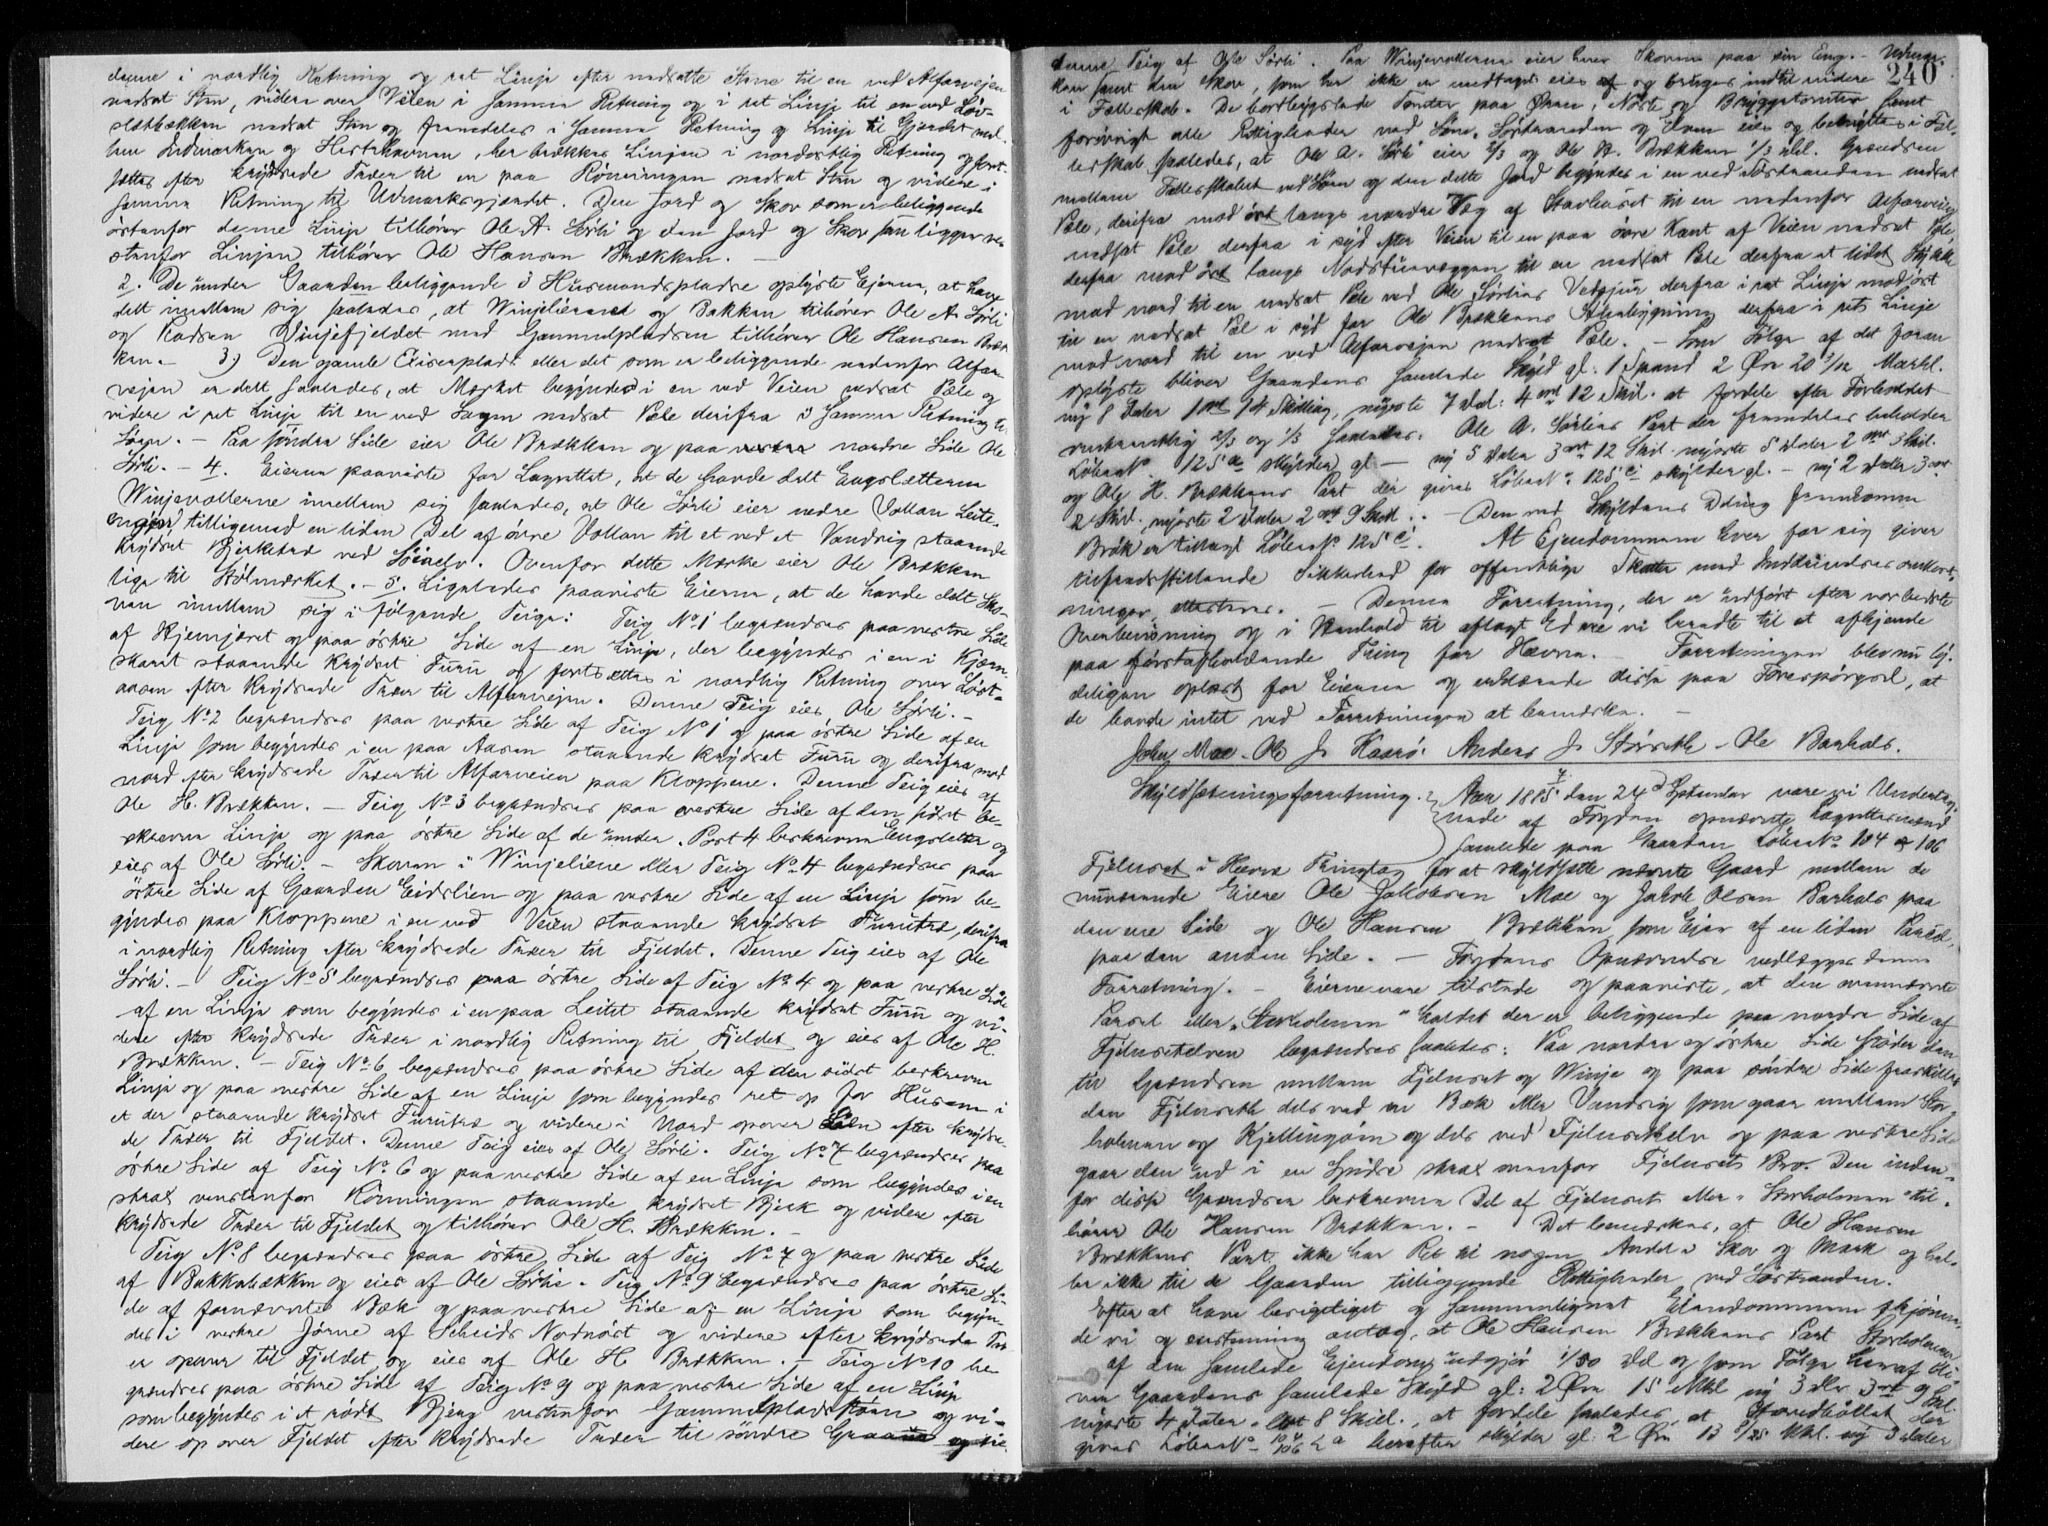 denne i nordlig Retning og ret Linje efter nedsatte Stene til en ved Alfarvejen
nedsat Sten, videre over Veien i samme Retning og i ret Linje til en ved Løv-
slætbækken nedsat Sten og fremdeles i samme Retning og Linje til Gjærdet mel-
lem Indmarken og Hestehavnen, her brækker Linjen i nordostlig Retning og fort-
sættes efter krydsede Træer til en paa Rönningen nedsat Sten og videre i
samme Retning til Udmarksgjærdet. Den Jord og Skov som er beliggende
östenfor denne Linje tilhörer Ole A. Sörli og den Jord og Skov som ligger ve-
stenfor Linjen tilhörer Ole Hansen Brækken. —
2. De under Gaarden beliggende 3 Husmandspladse oplyste Eierne, at have
delt imellem sig saaledes, at Winjelieneset og Bakken tilhörer Ole A. Sörli
og Pladsen Winjefjeldet med Gammelpladsen tilhörer Ole Hansen Bræk-
ken. — 3) Den gamle Exiserplads eller det som er beliggende nedenfor Alfar-
vejen er delt saaledes, at Mærket begyndes i en ved Veien nedsat Pæle og
videre i ret Linje til en ved Søen nedsat Pæle derifra i samme Retning til
Søen. — Paa söndre Side eier Ole Brækken og paa nordre Side Ole
Sörli. — 4. Eierne paaviste for Lagrettet, at de havde delt Engslætterne
Winjevollerne imellem sig saaledes, at Ole Sörli eier nedre Vollen Leite-
engen tilligemed en liden Del af övre Vollen til et ved et Vandsig staaende
krydset Birketræ ved Söaelv. Ovenfor dette Mærke eier Ole Brækken
lige til Stölmærket. — 5. Ligeledes paaviste Eierne, at de havde delt Sko-
ven imellem sig i følgende Teige: Teig No 1 begrændses paa vestre Side
af Hjemjæret og paa östre Side af en Linje, der begyndes i en i Kjern
skaret staaende krydset Furu og fortsættes i nordlig Retning over Löst-
aasen efter krydsede Træer til Alfarveien. Denne Teig eies Ole Sörli. —
Teig No 2 begrændses paa vestre Side af Teig No 1 og paa östre Side af en
Linje som begyndes i en paa Aasen staaende krydset Furu og derifra mod
nord efter krydsede Træer til Alfarveien paa Kloppene. Denne Teig eies af
Ole H. Brækken. — Teig No 3 begrændses paa vestre Side af den sidst be-
skrevne Linje og paa östre Side af de under Post 4 beskrevne Engsletter og
eies af Ole Sörli. — Skoven i Winjeliene eller Teig No 4 begrændses paa
östre Side af Gaarden Eidslien og paa vestre Side af en Linje som be-
gyndes paa Kloppene i en ved Veien staaende krydset Furutræ, derifra
i nordlig Retning efter krydsede Træer til Fjeldet. Denne Teig eies af Ole
Sörli. — Teig No 5 begrændses paa östre Side af Teig No 4 og paa vestre Side
af en Linje som begyndes i en paa Leitet staaende krydset Furu og vi-
dere efter krydsede Træer i nordlig Retning til Fjeldet og eies af Ole H.
Brækken. — Teig No 6 begrændses paa östre Side af den sidst beskrevne
Linje og paa vestre Side af en Linje som begyndes ret op for Husene i
et der staaende krydset Furutræ og videre i Nord opover Lien efter krydse-
de Træer til Fjeldet. Denne Teig eies af Ole Sörli. Teig No 7 begrændses paa
östre Side af Teig No 6 og paa vestre Side af en Linje som begyndes i en
strax vestenfor Rönningen staaende krydset Birk og videre efter
krydsede Træer til Fjeldet og tilhörer Ole H. Brækken. —
Teig No 8 begrændses paa östre Side af Teig No 7 og paa vestre Side
af Bakkebækken og eies af Ole Sörli. Teig No 9 begrændses paa östre Si-
de af fornævnte Bæk og paa vestre Side af en Linje som begyn-
des i vestre Jörne af Scheids Nodnöst og videre efter krydsede Træ-
er opover til Fjeldet og eies af Ole H. Brækken. — Teig No 10 be
grændses paa östre Side af Teig No 9 og paa vestre Side af en Linje
som begyndes i et rödt Bjerg vestenfor Gammelpladsstöen og vi-
dere op over Fjeldet efter krydsede Træer til söndre
240
denne Teig af Ole Sörli. Paa Winjevollerne eier hver Skoven paa sin Eng. — Udmar-
ken samt den Skov, som her ikke er medtaget eies af og bruges indtil videre
i Fællesskab. De bortbygslede Tomter paa Øren, Nöste og Bryggetomter samt
forövrigt alle Rettigheder ved Søen, Söstranden og Elven eies og benyttes i Fæl-
lesskab saaledes, at Ole A. Sörli eier 2/3 og Ole H. Brækken 1/3 del. Grændsen
mellem Fællesskabet ved Søen og den delte Jord begyndes i en ved Söstranden nedsat
Pæle, derifra mod öst langs nordre Væg af Stavhuset til en nedenfor Alfarveien
nedsat Pæle derfra i syd efter Veien til en paa övre Kant af Veien nedsat Pæle,
derfra mod öst langs Nordstuevæggen til en nedsat Pæle derfra et lidet Stykke
mod nord til en nedsat Pæle ved Ole Sörlies Vedskjur derfra i ret Linje mod öst
til en nedsat Pæl i syd for Ole Brækkens Stuebygning derfra i ret Linje
mod nord til en ved Alfarvejen nedsat Pæle. — Som Fölge af det foran
oplyste bliver Gaardens samlede Skyld gl: 1 Spand 2 Øre 20 3/12 Markl.
ny 8 Daler 1 ort 14 Skilling, nyeste 7 dal: 4 ort 12 Skil. at fordele efter Forholdet
omtrentlig 2/3 og 1/3 saaledes: Ole A. Sörlies Part der fremdeles beholder
Löbeno 125 a skylder gl — ny 5 Daler 3 ort 12 Skil. nyeste 5 Daler 2 ort 3 Skil.
og Ole H. Brækkens Part der gives Löbeno 125 c skylder gl. — ny 2 Daler 3 ort
2 Skil. nyeste 2 Daler 2 ort 9 Skill. — Den ved Skyldens Deling fremkomne
Brök er tillagt Löbeno 125 c. At Ejendommene hver for sig giver
tilfredsstillende Sikkerhed for offentlige Skatter med Inddrivelses omkost-
ninger, attesteres. — Denne Forretning, der er udfört efter vor bedste
Overbevisning og i Henhold til aflagt Ed ere vi beredte til at afhjemle
paa förstafholdende Thing for Hevne. — Forretningen blev nu ty-
deligen oplæst for Eierne og erklærede disse paa Forespörgsel, at
de havde intet ved Forretningen at bemærke. —
John Moe. Ole J. Haarö. Anders J. Störseth. Ole Barhals.
Skyldsætningsforretning. Aar 1875 den 24 September vare vi Underteg-
nede af Fogden opnævnte Lagrettesmænd
samlede paa Gaarden Löbeno 104 & 106
Fjelnset i Hevne Thinglag for at skyldsætte nævnte Gaard mellem de
nuværende Eiere Ole Jakobsen Moe og Jakob Olsen Barhals paa
den ene Side og Ole Hansen Brækken som Ejer af en liden Parcel,
paa den anden Side. — Fogdens Opnævnelse vedlægges denne
Forretning. — Eierne vare tilstede og paaviste, at den ovennævnte
Parsel eller „Storholmen" kaldet der er beliggende paa nordre Side af
Fjelnsetelven begrændses saaledes: Paa nordre og östre Side stöder den
til Grændsen mellem Fjelnset og Winje og paa söndre Side fraskilles
den Fjelnseth dels ved en Bæk eller Vandsig som gaar mellem Stor-
holmen og Kjellingöen og dels ved Fjelnsethelv og paa vestre Side
gaar den ud i en Spidse strax ovenfor Fjelnsets Bro. Den inden-
for disse Grændser beskrevne Del af Fjelnset eller „Storholmen" til-
hörer Ole Hansen Brækken. — Det bemærkes, at Ole Hansen
Brækkens Part ikke har Ret til nogen Andel i Skov og Mark og hel-
ler ikke til de Gaarden tilliggende Rettigheder ved Söstranden.
Efter at have besigtiget og sammenlignet Eiendommene skjönne-
de vi og enstemmig antog, at Ole Hansen Brækkens Part Storholmen
af den samlede Ejendom udgjör 1/50 Del og som Fölge heraf bli-
ver Gaardens samlede Skyld gl: 2 Øre 15 Mkl ny 3 dlr 3 ort 9 Skl.
nyeste 4 Daler 8 Skill., at fordele saaledes, at Hovedböllet der
gives Löbeno 104/106 a herefter skylder gl: 2 Øre 13 Mkl. ny 3 Daler